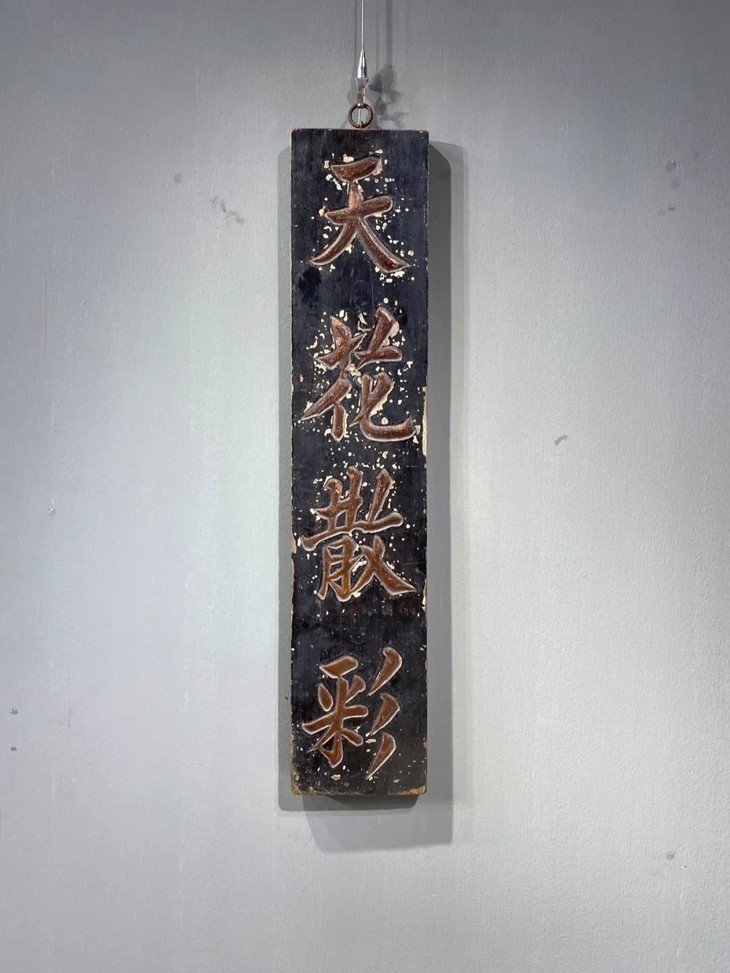 天花散彩